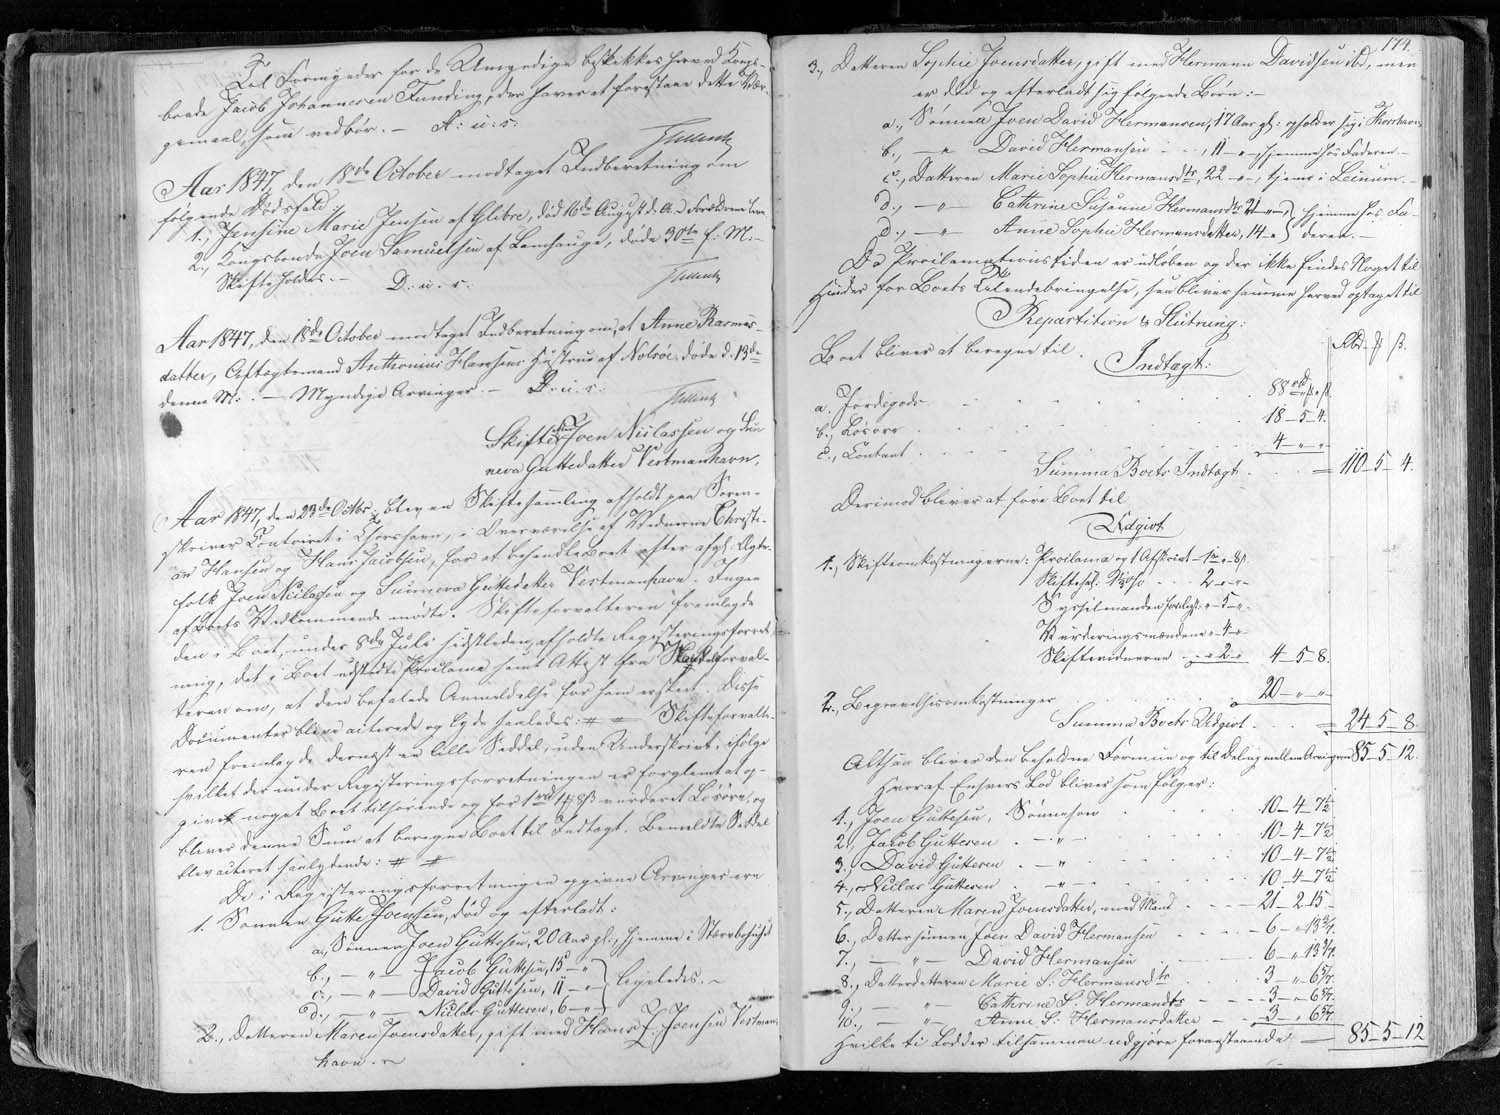 Til Formynder for de Umyndige beskikkes herved Kongs-
bonde Jacob Johannesen Funding, der haver at forestaae dette Vær-
gemaal, som vedbør. — D: u: s:
Aar 1847, den 18de October modtaget Indberetning om
følgende Dødsfald.
1., Jensine Marie Jensen af Glibre, død 16de August d. A.
2., Kongsbonde Joen Samuelsen af Lamhauge, døde 30te f. M: —
Skifte holdes. — D. u. s:
Aar 1847, den 18de October modtaget Indberetning om, at Anne Rasmus-
datter, Aftægtsmand Anthonius Hansens Hustrue af Nolsøe døde d. 13de
denne M: — Myndige Arvinger. — D: u: s:
Skifte efter Joen Niclassen og Sun
neva Guttedatter Vestmanhavn.
Aar 1847, den 23de Octbr: blev en Skiftesamling afholdt paa Soren-
skriver Contoiret i Thorshavn, i Overværelse af Vidnerne Christi-
an Hansen og Hans Jacobsen, for at behandle Boet efter afg: Ægte-
folk Joen Niclassen og Sunneva Guttedatter Vestmanhavn. Ingen
af Boets Vedkommende mødte. Skifteforvalteren fremlagde
den i Boet, under 8de Juli sidstleden, afholdte Registeringsforret-
ning, det i Boet udstedte Proclama samt Attest fra Skifteforval-
teren om, at den befalede Anmeldelse for ham er skeet. Disse
Documenter blive acterede og lyde saaledes: # # Skifteforvalte-
ren fremlagde dernæst en lille Seddel, uden Underskrivt, ifølge
hvilket det under Registeringsforretningen er forglemt at op-
givet noget Boet tilhørende og for 1 rbd 1 ₰ 8 ß vurderet Løsøre, og
bliver denne Sum at beregne Boet til Indtægt. Bemeldte Seddel
blev acteret saalydende: # #
De i Registeringsforretningen opgivne Arvinger ere
1. Sønnen Gutte Joensen, død og efterladt:
a., Sønnen Joen Guttesen, 20 Aar gl:, hjemme i Stærvbohuset
b., — " — Jacob Guttesen, 15 — "
c., — " — David Guttesen, 11 — " } ligeledes. —
d., — " — Niclas Guttesen, 6 — "
2., Datteren Maren Joensdatter, gift med Hans J. Joensen Vestman-
havn. —
174.
3., Datteren Sophie Joensdatter, gift med Hermann Davidsen ibd, men
er død og efterladt sig følgende Børn: —
a., Sønnen Joen David Hermansen, 17 Aar gl: opholder sig i Thorshavn,
b., — " David Hermansen — , 11 — " , hjemme hos Faderen. —
c., Datteren Marie Sophie Hermansdtr, 22 — " —, tjener i Leinum. —
d., — " — Cathrine Susanne Hermansdtr 21 — " — } hjemme hos Fa-
d., — " — Anne Sophie Hermansdatter, 14 — " } deren. —
Da Proclamationstiden er udløben og der ikke findes Noget til
Hinder for Boets Tilendebringelse, saa bliver samme herved optaget til
Repartition & Slutning:
Boet bliver at beregne til Rbd ₰ ß.
Indtægt:
a. Jordegods . . . 88 rbd " ₰ " ß
b., Løsøre . . . 18 — 5 — 4.
c., Contant . . . 4 — " — "
Summa Boets Indtægt . . . = 110 — 5 — 4.
Derimod bliver at føre Boet til
Udgivt
1., Skifteomkostningerne: Proclama og 1 Afskrivt — 1 rbd " — 8 ß
Skiftesal: . . 2 — " — "
Sysselmanden forelagt: " — 5 — "
Vurderingsmændene " — 4 — "
Skiftevidnerne — " — 2 — " 4 — 5 — 8.
2., Begravelsesomkostninger . . . 20 — " — "
Summa Boets Udgivt . . . = 24 — 5 — 8.
Altsaa bliver den beholdne Formue og til Deling mellem Arvingerne 85 — 5 — 12.
Hvoraf Enhvers Lod bliver som følger:
1., Joen Guttesen, Sønnesøn . . 10 — 4 — 7½
2., Jacob Guttesen . — " . . 10 — 4 — 7½
3., David Guttesen . — " . . 10 — 4 — 7½
4., Niclas Guttesen . — " — . . 10 — 4 — 7½
5., Datteren Maren Joensdatter, med Mand . . . 21 — 2 — 15 —
6., Dattersønnen Joen David Hermansen — — — 6 — " 13 3/7.
7., — " — David Hermansen . — — 6 — " 13 3/7.
8., Datterdatteren Marie S: Hermansdtr . . 3 — " 6 5/7.
9., — " — Cathrine S. Hermansdtr — — 3 — " 6 5/7.
10., — " — Anne S: Hermansdatter — — 3 — " 6 5/7
Hvilke ti Lodder tilsammen udgjøre foranstaaende = 85 — 5 — 12